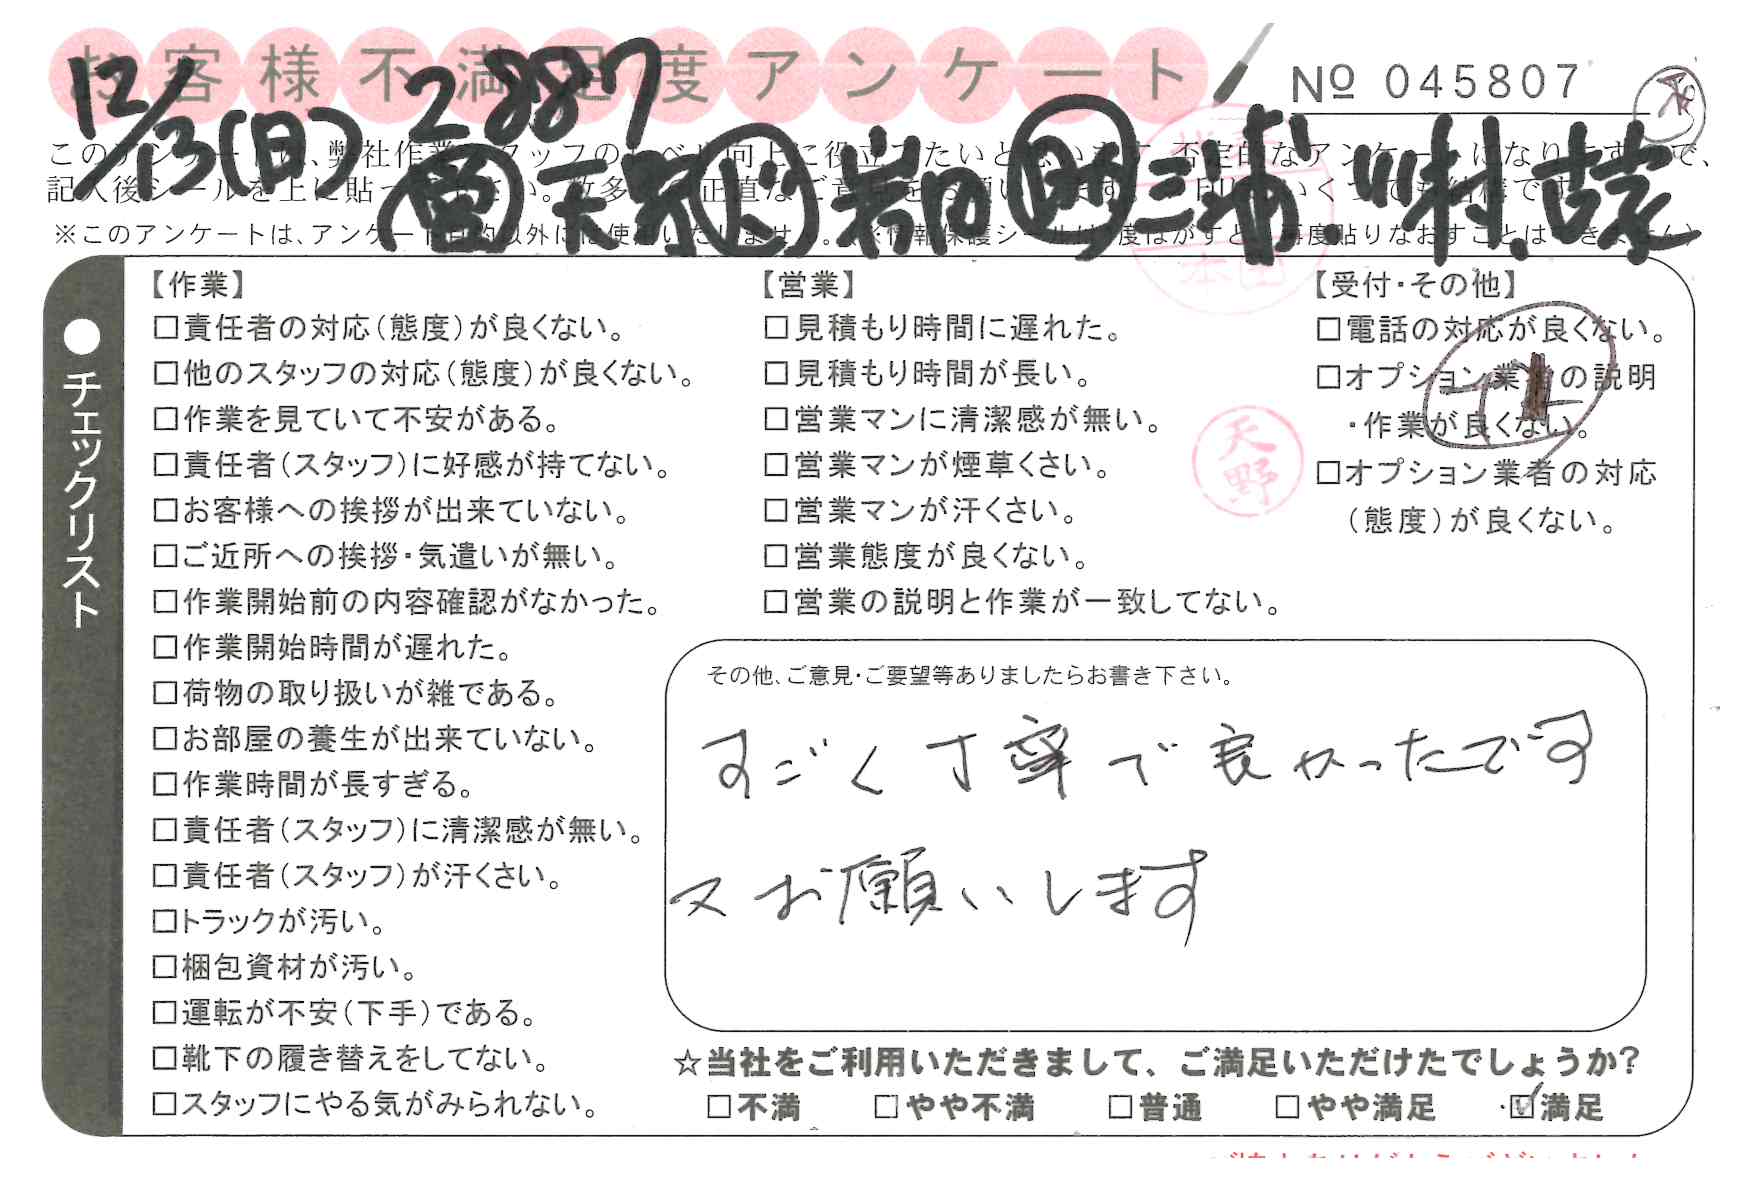 お客様不満足度アンケート
№ 045807
12/13(日) 2887
天野 岩田 三浦 川村、古家
【作業】
□責任者の対応(態度)が良くない。
□他のスタッフの対応(態度)が良くない。
□作業を見ていて不安がある。
□責任者(スタッフ)に好感が持てない。
□お客様への挨拶が出来ていない。
□ご近所への挨拶・気遣いが無い。
□作業開始前の内容確認がなかった。
□作業開始時間が遅れた。
□荷物の取り扱いが雑である。
□お部屋の養生が出来ていない。
□作業時間が長すぎる。
□責任者(スタッフ)に清潔感が無い。
□責任者(スタッフ)が汗くさい。
□トラックが汚い。
□梱包資材が汚い。
□運転が不安(下手)である。
□靴下の履き替えをしてない。
□スタッフにやる気がみられない。
【営業】
□見積もり時間に遅れた。
□見積もり時間が長い。
□営業マンに清潔感が無い。
□営業マンが煙草くさい。
□営業マンが汗くさい。
□営業態度が良くない。
□営業の説明と作業が一致してない。
【受付・その他】
□電話の対応が良くない。
□オプション業者の説明
・作業が良くない。
□オプション業者の対応
(態度)が良くない。
天野
●チェックリスト
その他、ご意見・ご要望等ありましたらお書き下さい。
すごく丁寧で良かったです
又お願いします
☆当社をご利用いただきまして、ご満足いただけたでしょうか?
□不満 □やや不満 □普通 □やや満足 ☑満足